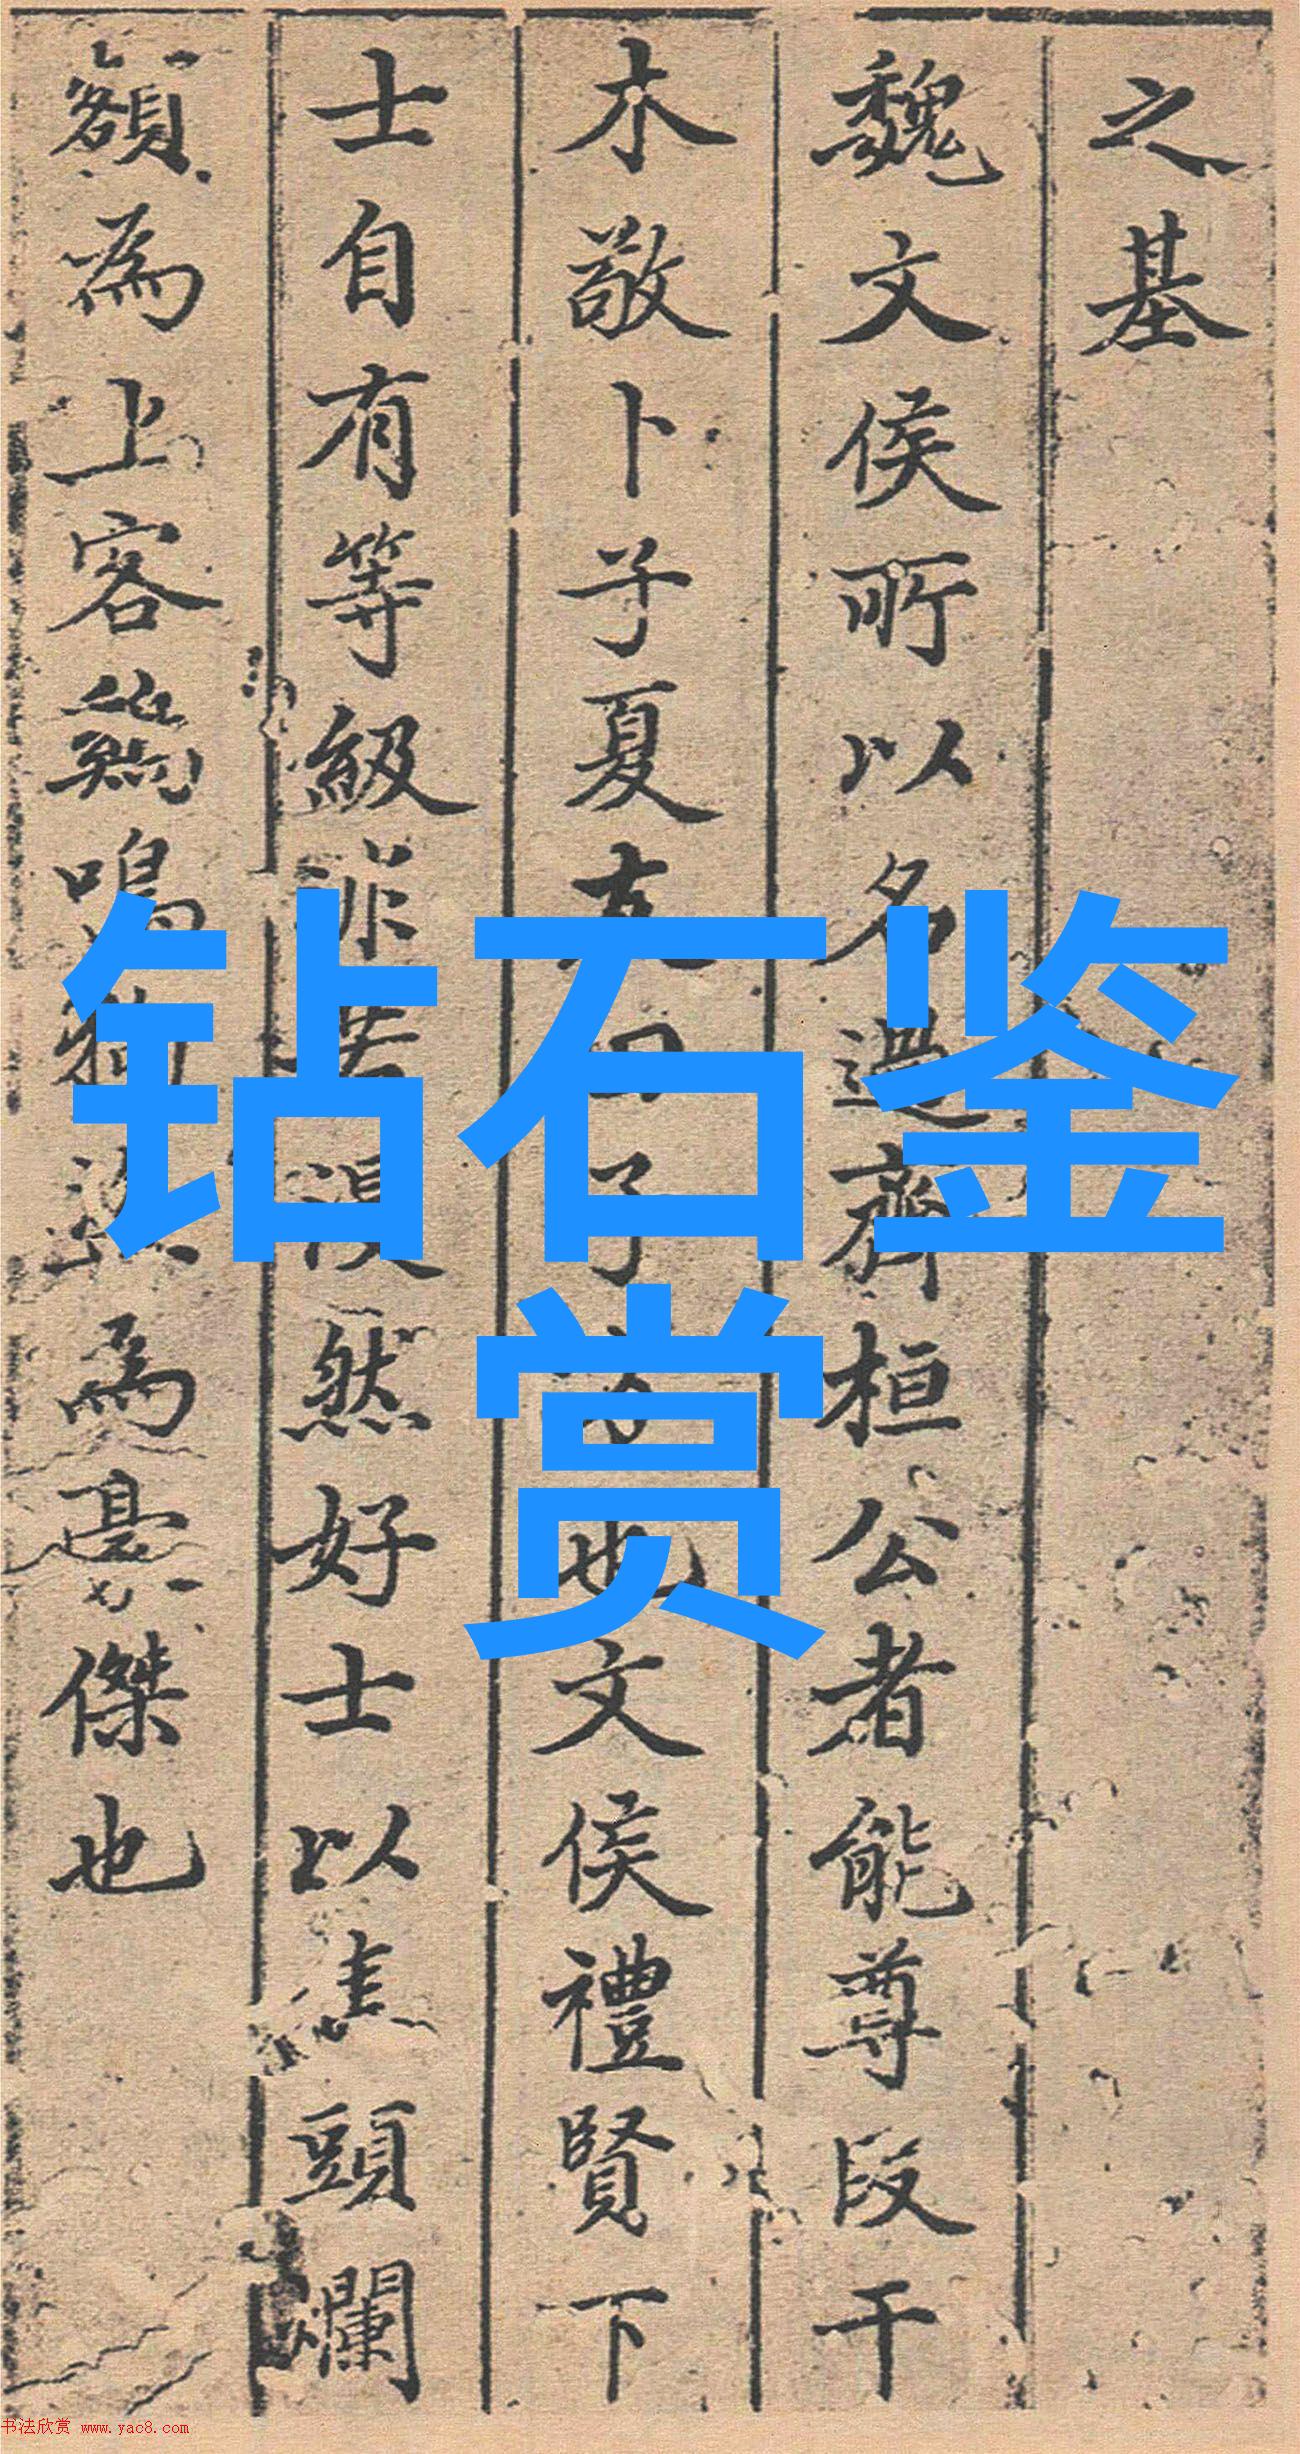 之基
魏文侯所以名過齊桓公者能尊段干
木敬卜子夏友田子方也文侯禮賢下
士自有等級非若漫然好士以焦頭爛
額為上客鷄鳴狗盜為豪傑也
钻石鉴
赏
书法欣赏 www.yac8.com